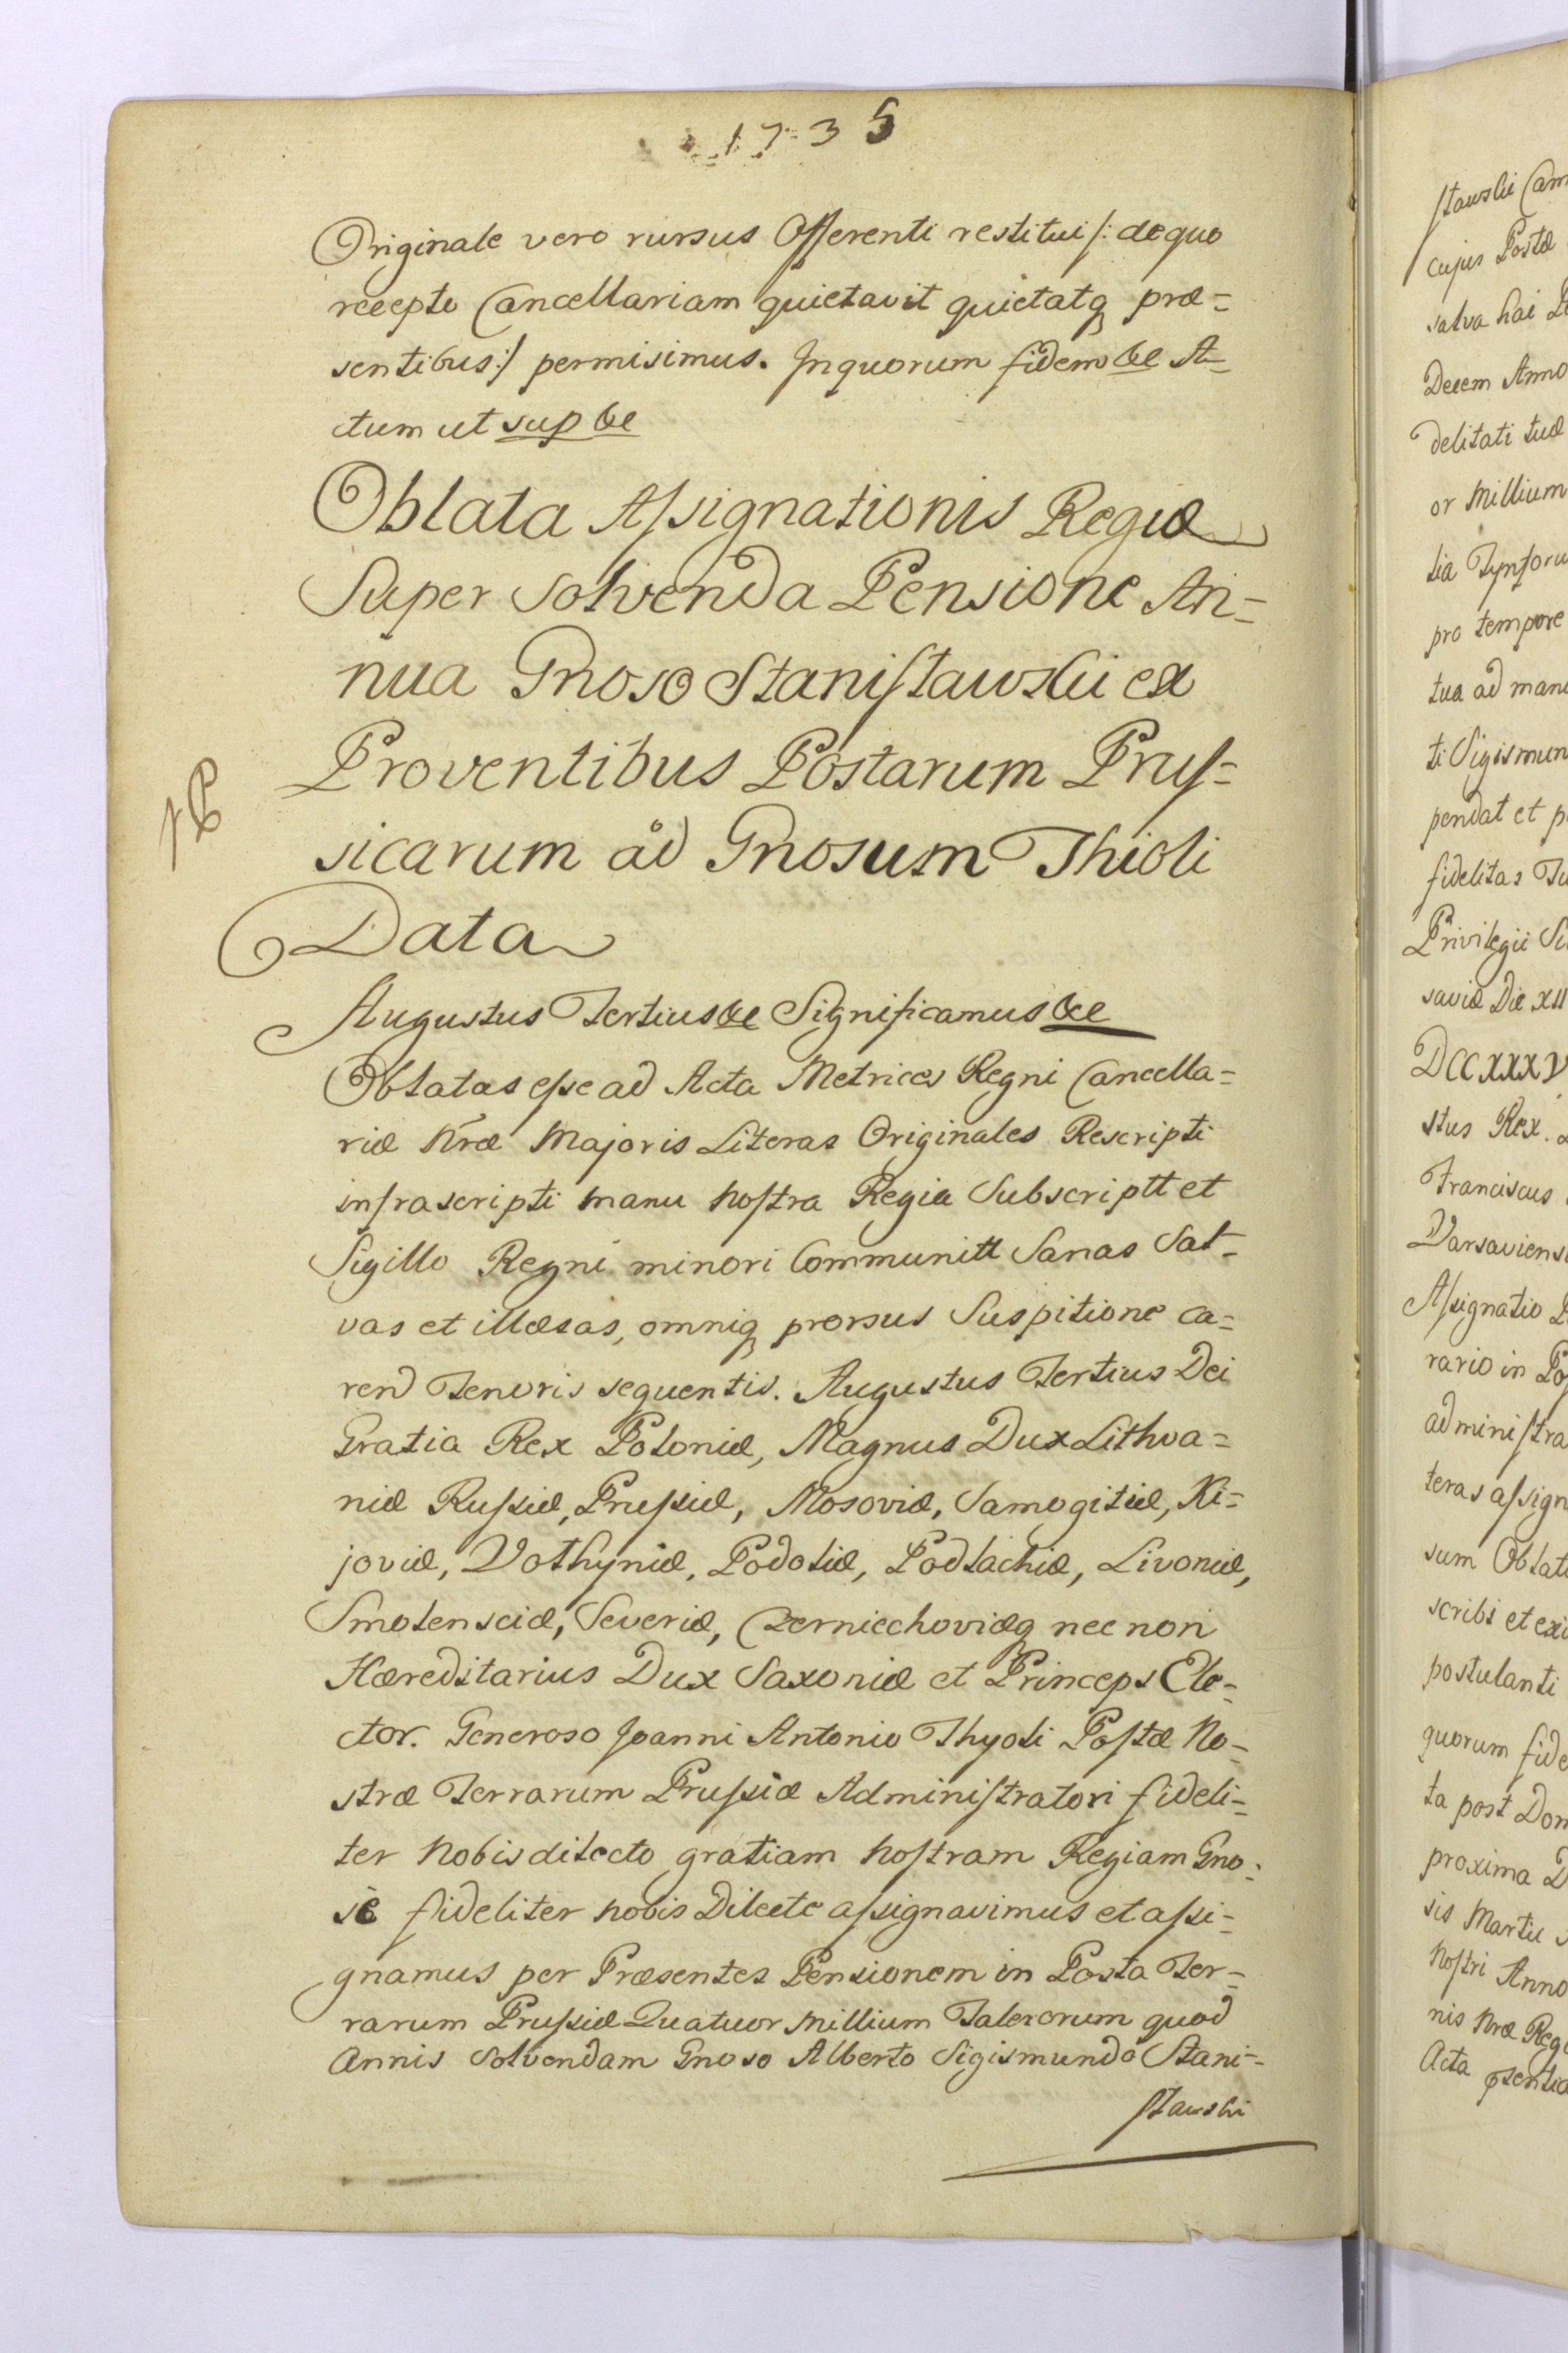 1735
Originale vero rursus Offerenti restitui /: de quo
recepto Cancellariam quietavit quietatq præ=
sentibus :/ permisimus. In quorum fidem &c A=
ctum ut sup &c
Oblata Assignationis Regiæ
Super Solvenda Pensione An=
nua Gnoso Stanisławski ex
Proventibus Postarum Prus=
sicarum ad Gnosum Thioli
Data
Augustus Tertius &c Significamus &c
Oblatas esse ad Acta Metrices Regni Cancella=
riæ Nræ Majoris Literas Originales Rescripti
infrascripti manu nostra Regia Subscriptt et
Sigillo Regni minori Communitt Sanas Sal=
vas et illæsas, omniq prorsus Suspitione ca=
rend Tenoris sequentis. Augustus Tertius Dei
Gratia Rex Poloniæ, Magnus Dux Lithva=
niæ Russiæ, Prussiæ, Mosoviæ, Samogitiæ, Ki=
joviæ, Volhyniæ, Podoliæ, Podlachiæ, Livoniæ,
Smolensciæ, Severiæ, Czerniechoviæq nec non
Hæreditarius Dux Saxoniæ et Princeps Ele=
ctor. Generoso Joanni Antonio Thyoli Postæ No=
stræ Terrarum Prussiæ Administratori fideli=
ter Nobis dilecto gratiam nostram Regiam Gno=
se fideliter nobis Dilecte assignavimus et assi=
gnamus per Præsentes Pensionem in Posta Ter=
rarum Prussiæ Quatuor Millium Talerorum quod
Annis Solvendam Gnoso Alberto Sigismundo Stani=
sławski
sławskii Cam
cujus Postæ
salva hai
Decem Anno
delitati tuæ
or Millium
tia Tynforu
pro tempore
tua ad manu
ti Sigismun
pendat et p
fidelitas Tu
Privilegii Si
saviæ Die XII
DCCXXXV
stus Rex.
Franciscus
Varsaviens
Assignatio
rario in Po
administra
teras assign
sum Oblat
scribi et exi
postulanti
quorum fide
ta post Dom
proxima D
sis Martii
Nostri Anno
nis Nræ Reg
Acta